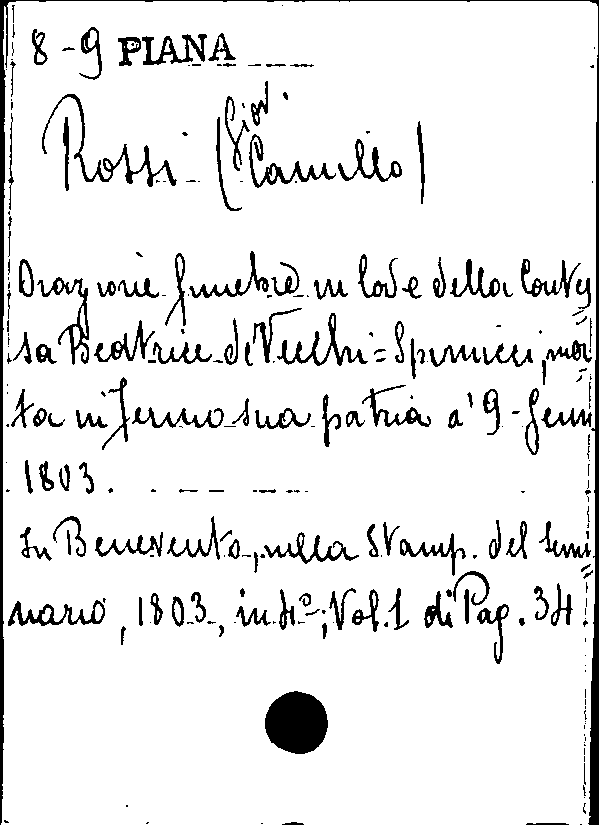 8-9 PIANA
Rossi (Giov. Camillo)
Orazione funebre in lode della Contes
sa Beatrice de Vecchi=Spinucci, mor
ta in Fermo sua patria a' 9-Genn
1803.
In Benevento, nella Stamp. del Semi
nario, 1803, in 4º; Vol. 1 di Pag. 34.